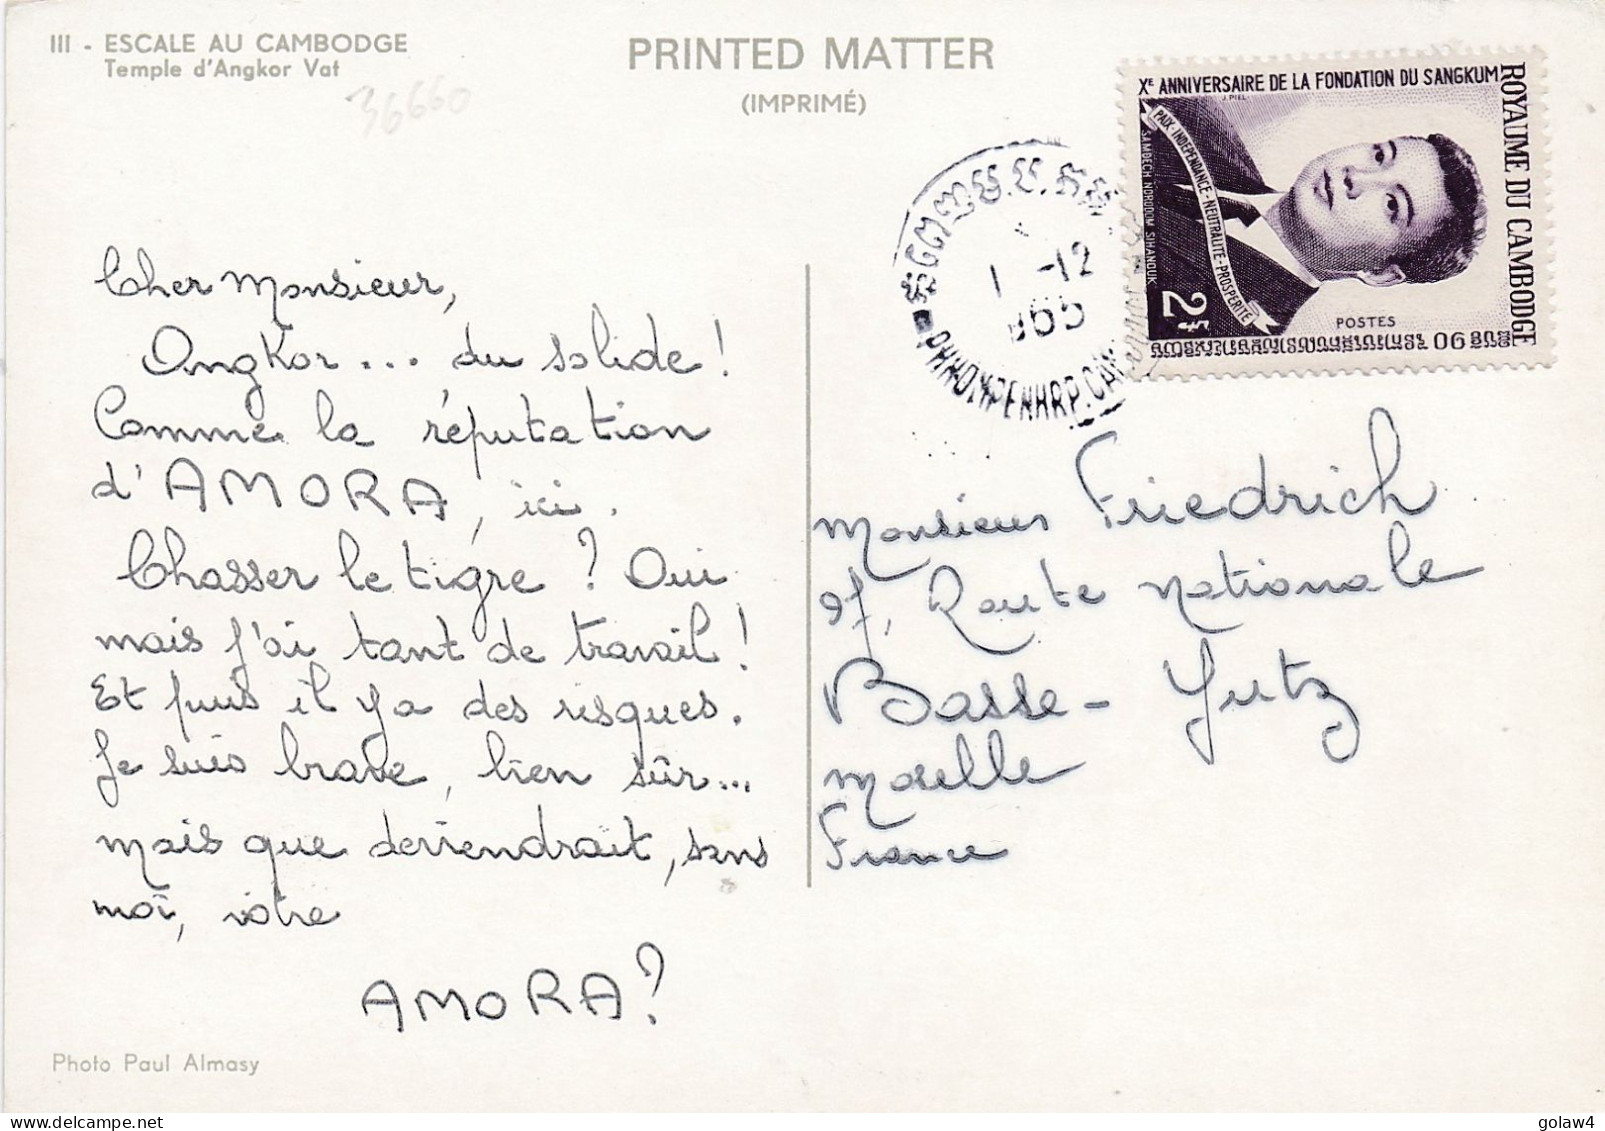 III - ESCALE AU CAMBODGE
Temple d'Angkor Vat
36660
PRINTED MATTER
(IMPRIMÉ)
Xᴱ ANNIVERSAIRE DE LA FONDATION DU SANGKUM
J. PIEL
ROYAUME DU CAMBODGE
PAIX-INDEPENDANCE-NEUTRALITE-PROSPERITE
SAMDECH NORODOM SIHANOUK
2
POSTES
1 -12
965
PHNOM-PENH R.P. CAM
Cher Monsieur,
Angkor... du solide !
Comme la réputation
d'AMORA, ici.
Chasser le tigre ? Oui
mais j'ai tant de travail !
Et puis il y a des risques.
Je suis brave, bien sûr...
mais que deviendrait, sans
moi, votre
AMORA ?
Monsieur Friedrich
Route Nationale
Basse - Yutz
Moselle
France
Photo Paul Almasy
golaw4